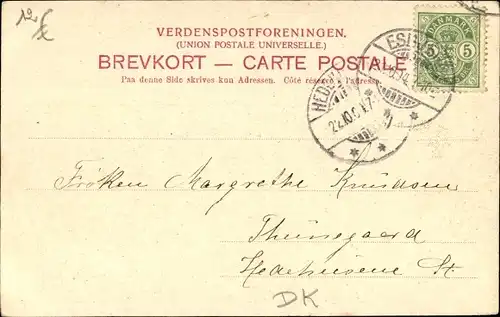 12
VERDENSPOSTFORENINGEN.
(UNION POSTALE UNIVERSELLE.)
BREVKORT — CARTE POSTALE
Paa denne Side skrives kun Adressen. Côté réservé à l'adresse.
DANMARK
5 5
ESI
HEDEHU
Frøken Margrethe Knudsen
Thunegaard
Hedehusene St.
DK